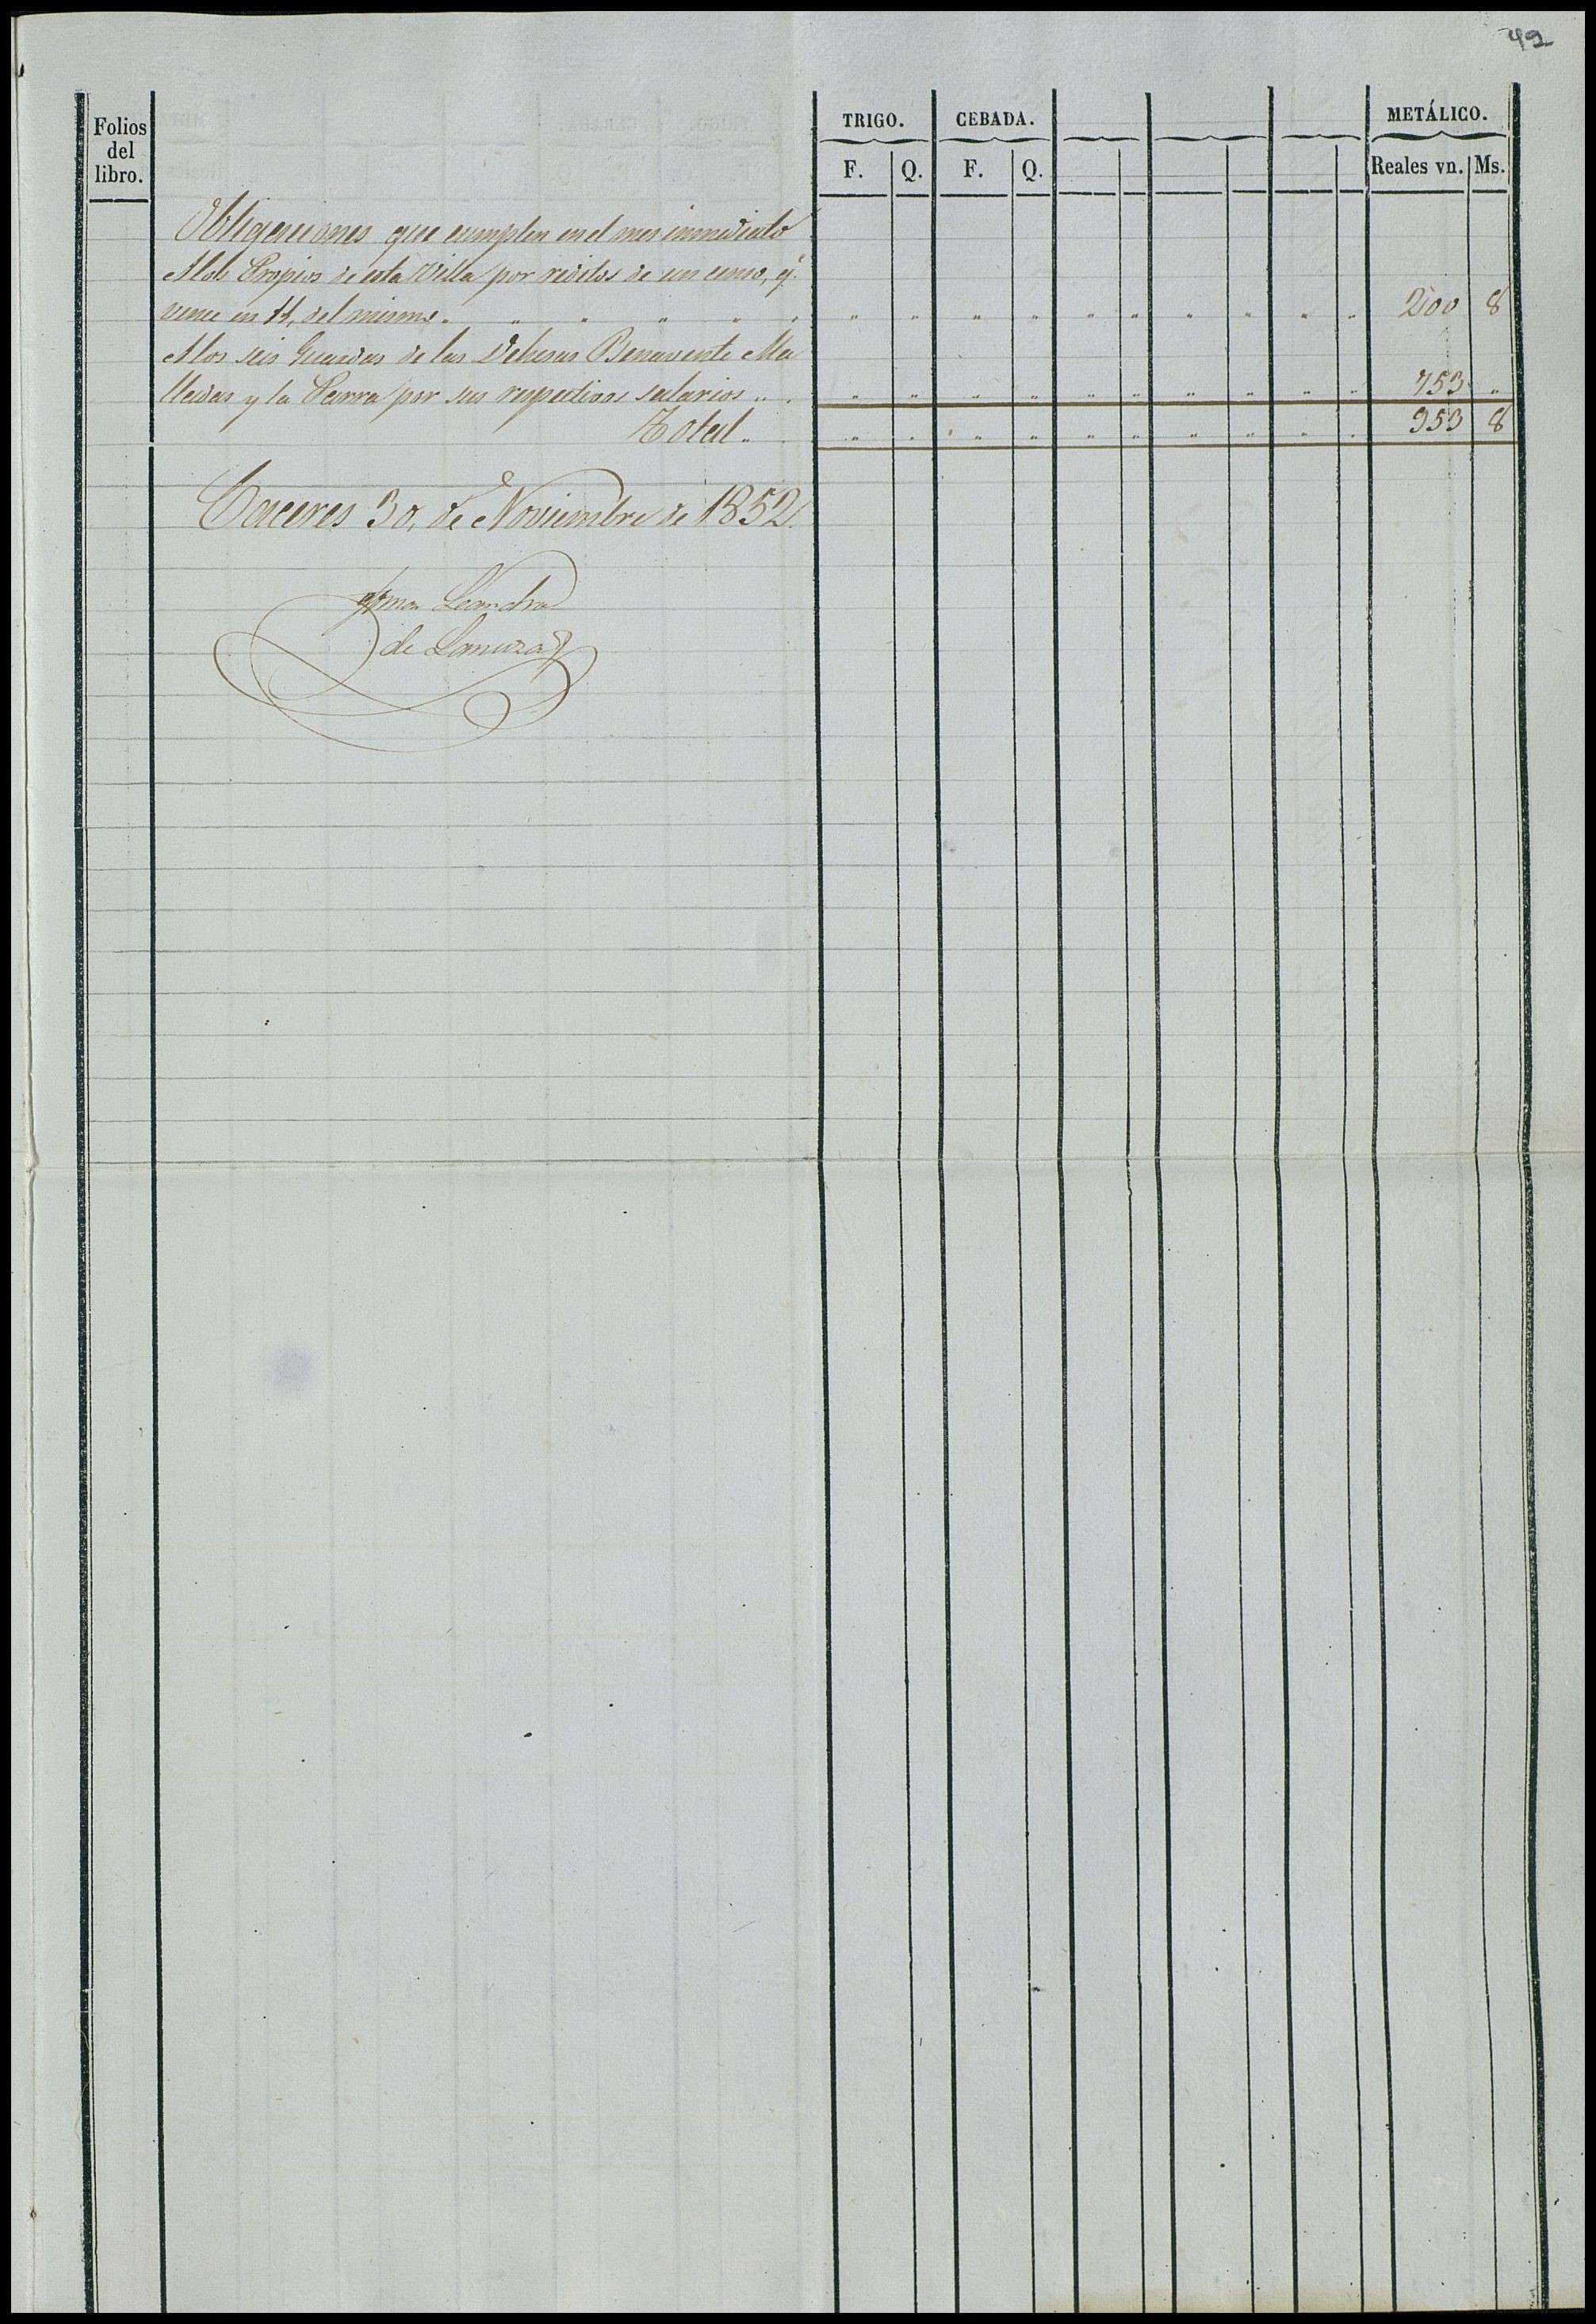 42
Folios del libro.
TRIGO. CEBADA. METÁLICO.
F. Q. F. Q. Reales vn. Ms.
Obligaciones que cumplen en el mes inmediato
A los Propios de esta Villa por reditos de un censo, q.e
vence en 11, del mismo. " " " " " " " " " " " " " " " 200 8
A los seis Guardas de las Dehesas Benavente Ma
lladas y la Parra por sus respectivos salarios " " " " " " " " " " " 753 "
Total " " " " " " " " " " " 953 8
Caceres 30, de Noviembre de 1852.
Leandro
de Lanuza